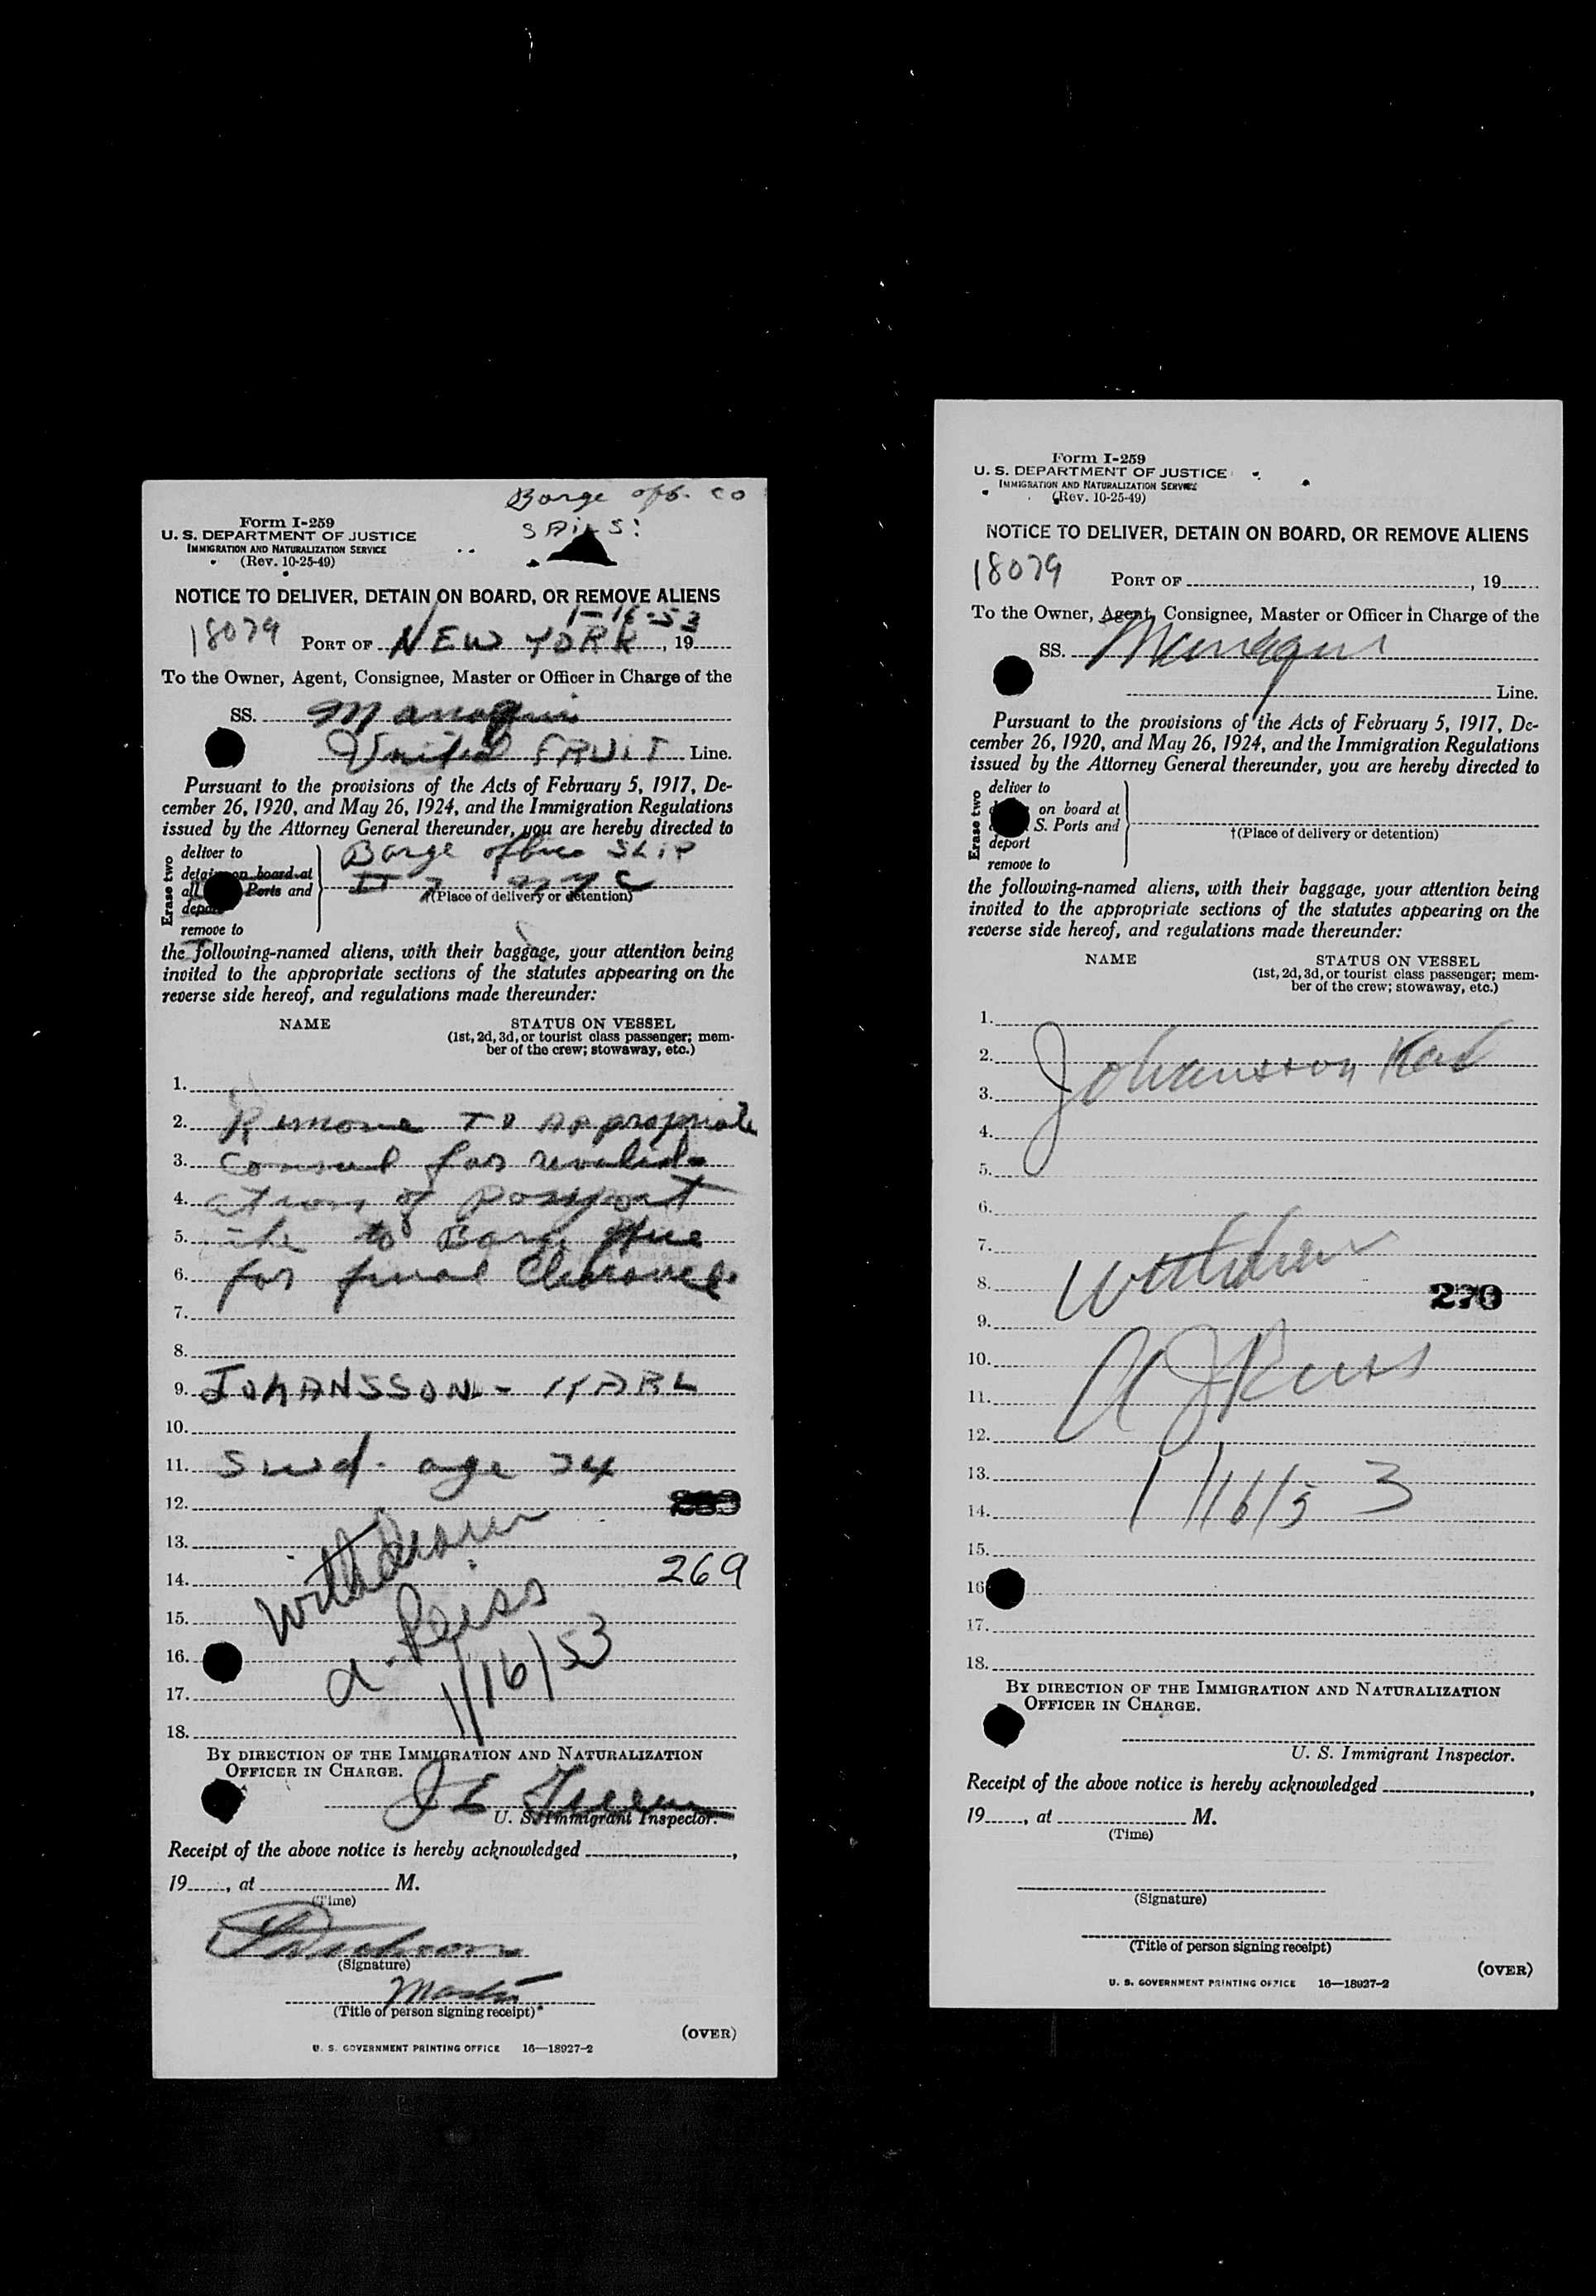 Barge off. co
SAILS:
Form I-259
U. S. DEPARTMENT OF JUSTICE
IMMIGRATION AND NATURALIZATION SERVICE
(Rev. 10-25-49)
NOTICE TO DELIVER, DETAIN ON BOARD, OR REMOVE ALIENS
1-16-53
18079 PORT OF NEW YORK, 19
To the Owner, Agent, Consignee, Master or Officer in Charge of the
SS. Managui
United FRUIT Line.
Pursuant to the provisions of the Acts of February 5, 1917, De-
cember 26, 1920, and May 26, 1924, and the Immigration Regulations
issued by the Attorney General thereunder, you are hereby directed to
Erase two
deliver to
detain on board at
all Ports and
deport
remove to
Barge office SLIP
NYC
†(Place of delivery or detention)
the following-named aliens, with their baggage, your attention being
invited to the appropriate sections of the statutes appearing on the
reverse side hereof, and regulations made thereunder:
NAME STATUS ON VESSEL
(1st, 2d, 3d, or tourist class passenger; mem-
ber of the crew; stowaway, etc.)
1.
2. Remove TO Appropriate
3. Consul for revalid-
4. ation of passport
5. to Barge office
6. for final Clearance.
7.
8.
9. JOHANSSON - KARL
10.
11. Swd. age 34
12.
13. withdrawn
14. 269
15. A. Reiss
16. 1/16/53
17.
18.
BY DIRECTION OF THE IMMIGRATION AND NATURALIZATION
OFFICER IN CHARGE.
U. S. Immigrant Inspector.
Receipt of the above notice is hereby acknowledged ,
19 , at M.
(Time)
(Signature)
Master
(Title of person signing receipt)
(OVER)
U. S. GOVERNMENT PRINTING OFFICE 16—18927-2
Form I-259
U. S. DEPARTMENT OF JUSTICE
IMMIGRATION AND NATURALIZATION SERVICE
(Rev. 10-25-49)
NOTICE TO DELIVER, DETAIN ON BOARD, OR REMOVE ALIENS
18079 PORT OF , 19
To the Owner, Agent, Consignee, Master or Officer in Charge of the
SS. Managui
Line.
Pursuant to the provisions of the Acts of February 5, 1917, De-
cember 26, 1920, and May 26, 1924, and the Immigration Regulations
issued by the Attorney General thereunder, you are hereby directed to
Erase two
deliver to
on board at
S. Ports and
deport
remove to
†(Place of delivery or detention)
the following-named aliens, with their baggage, your attention being
invited to the appropriate sections of the statutes appearing on the
reverse side hereof, and regulations made thereunder:
NAME STATUS ON VESSEL
(1st, 2d, 3d, or tourist class passenger; mem-
ber of the crew; stowaway, etc.)
1.
2. Johansson Karl
3.
4.
5.
6.
7.
8. withdrawn 270
9.
10. A J Reiss
11.
12.
13. 1/16/53
14.
15.
16
17.
18.
BY DIRECTION OF THE IMMIGRATION AND NATURALIZATION
OFFICER IN CHARGE.
U. S. Immigrant Inspector.
Receipt of the above notice is hereby acknowledged ,
19 , at M.
(Time)
(Signature)
(Title of person signing receipt)
(OVER)
U. S. GOVERNMENT PRINTING OFFICE 16—18927-2